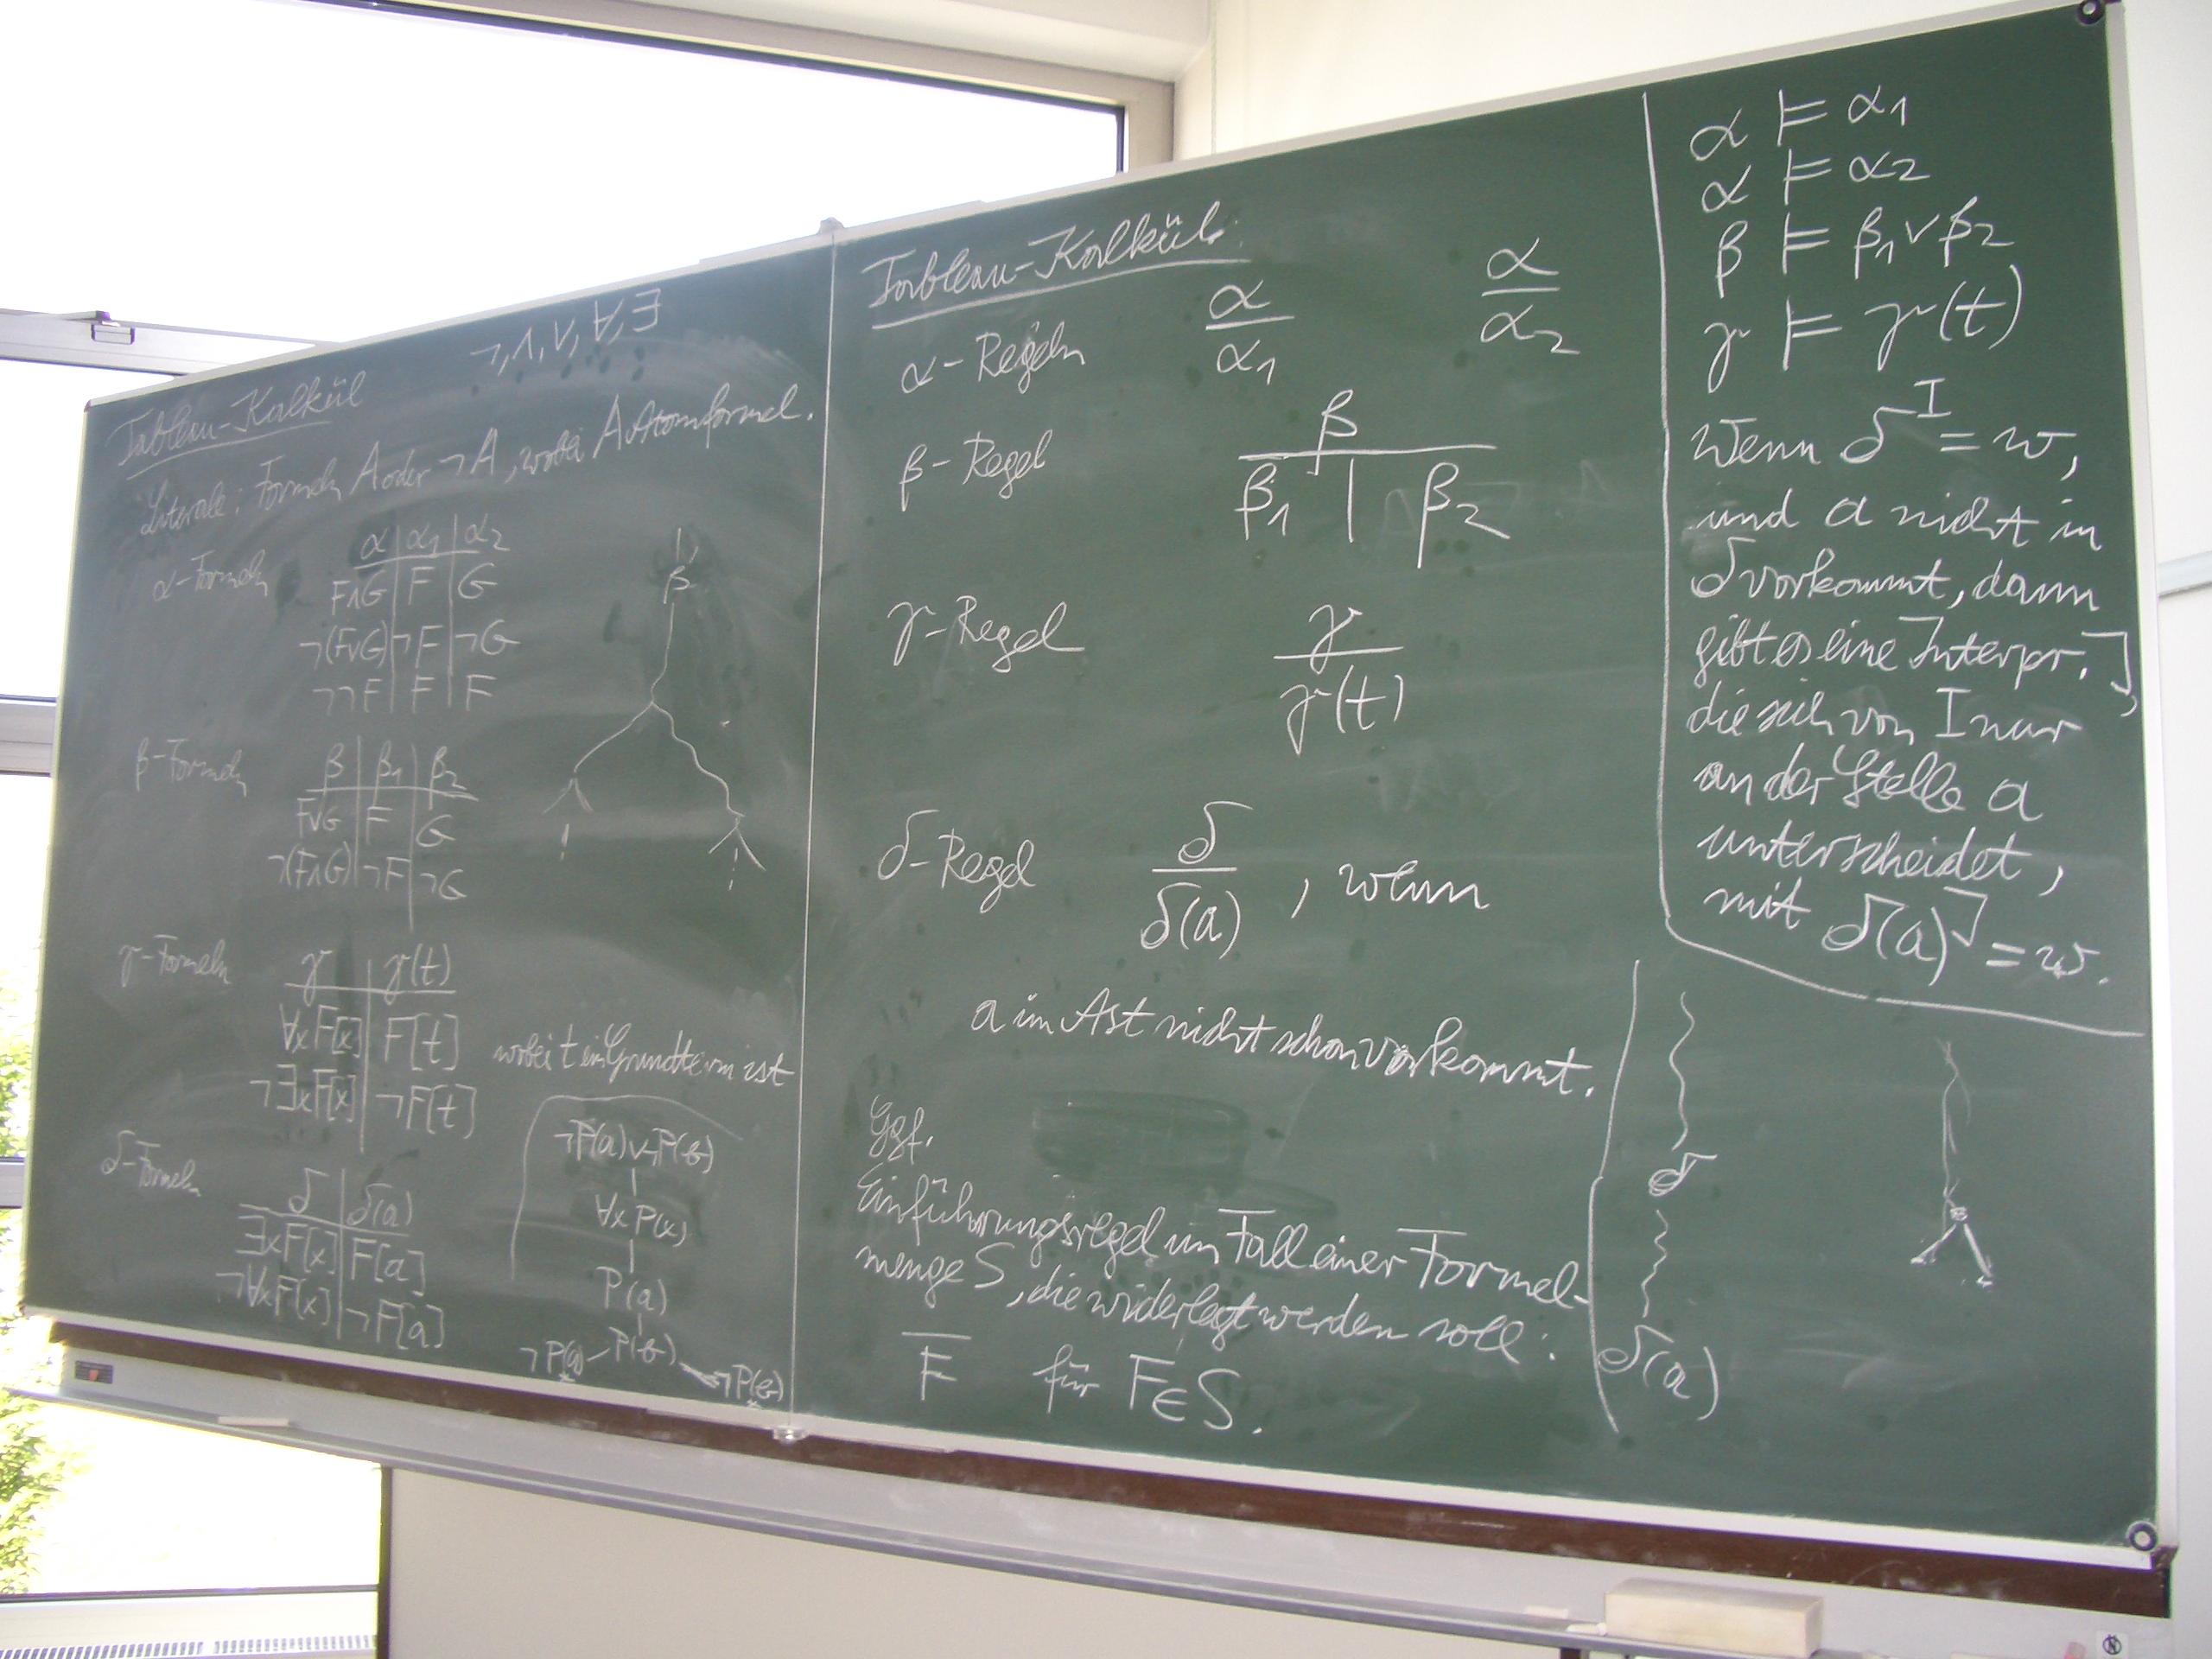 Tableau-Kalkül
¬, ∧, ∨, ∀, ∃
Literale: Formeln A oder ¬A, wobei A Atomformel.
α-Formeln
α | α1 | α2
F∧G | F | G
¬(F∨G) | ¬F | ¬G
¬¬F | F | F
β
β-Formeln
β | β1 | β2
F∨G | F | G
¬(F∧G) | ¬F | ¬G
γ-Formeln
γ | γ(t)
∀xF[x] | F[t]
¬∃xF[x] | ¬F[t]
wobei t ein Grundterm ist
δ-Formeln
δ | δ(a)
∃xF[x] | F[a]
¬∀xF[x] | ¬F[a]
¬P(a)∨¬P(b)
∀x P(x)
P(a)
P(b)
¬P(a)
*
¬P(b)
*
Tableau-Kalkül:
α-Regeln
α
α1
α
α2
β-Regel
β
β1 | β2
γ-Regel
γ
γ(t)
δ-Regel
δ
δ(a)
, wenn
a im Ast nicht schon vorkommt.
Ggf.
Einführungsregel im Fall einer Formel-
menge S, die widerlegt werden soll:
F für F∈S.
α ⊨ α1
α ⊨ α2
β ⊨ β1∨β2
γ ⊨ γ(t)
Wenn δ^I = w,
und a nicht in
δ vorkommt, dann
gibt es eine Interpr. J,
die sich von I nur
an der Stelle a
unterscheidet,
mit δ(a)^J = w.
δ
δ(a)